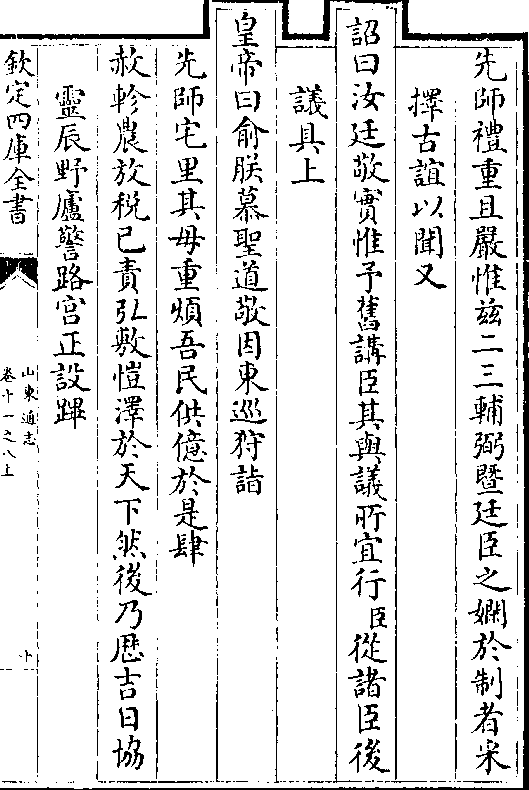 先師禮重且嚴惟兹二三輔弼暨廷臣之嫻於制者采
擇古誼以聞又
詔曰汝廷敬實惟予舊講臣其與議所宜行臣從諸臣後
議具上
皇帝曰俞朕慕聖道敬因東巡狩詣
先師宅里其毋重煩吾民供億於是肆
赦軫農放稅已責弘敷愷澤於天下然後乃厯吉日協
靈辰野廬警路宫正設蹕
欽定四庫全書
山東通志
卷十一之八上
十